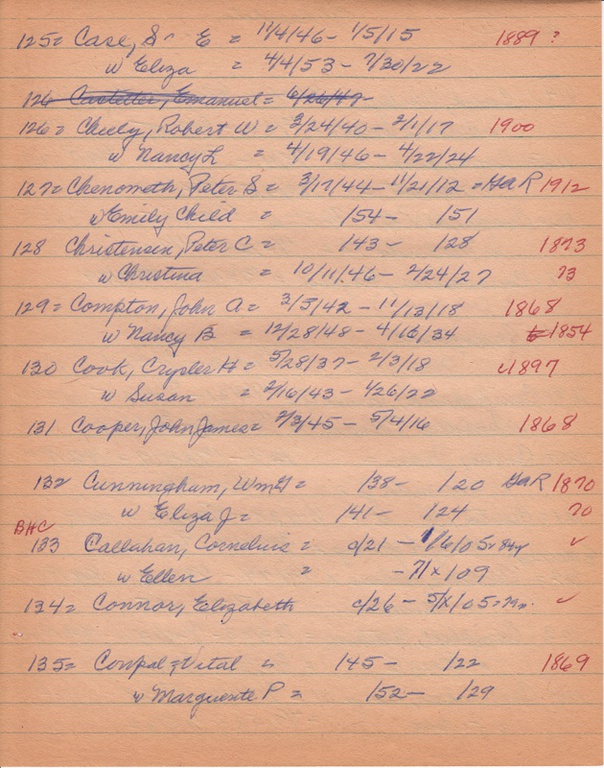 125= Case, S~ E = 11/4/46 - 1/5/15 1889 ?
w Eliza = 4/4/53 - 7/30/22
126 Castetter, Emanuel = 6/26/47-
126= Cheely, Robert W = 3/24/40 - 2/1/17 1900
w Nancy L = 4/19/46 - 4/22/24
127= Chenoweth, Peter S = 3/17/44 - 11/21/12 = GaR 1912
w Emily Child = /54 - /51
128 Christensen, Peter C = /43 - /28 1873
w Christina = 10/11/46 - 2/24/27 73
129= Compton, John A = 3/5/42 - 11/13/18 1868
w Nancy B = 12/28/48 - 4/16/34 1854
130 Cook, Crysler H = 5/28/37 - 2/3/18 c1897
w Susan = 2/16/43 - 1/26/22
131 Cooper, John James = 2/3/45 - 5/4/16 1868
132 Cunningham, Wm G = /38 - /20 GaR 1870
w Eliza J = /41 - /24 70
BHC
133 Callahan, Cornelius = c/21 - 1/6/05 = 84y ✓
w Ellen = - 71 x 109
134= Connor, Elizabeth c/26 - 5/x/05 = 79 ✓
135= Vital = /45 - /22 1869
w Marguerite P = /52 - /29